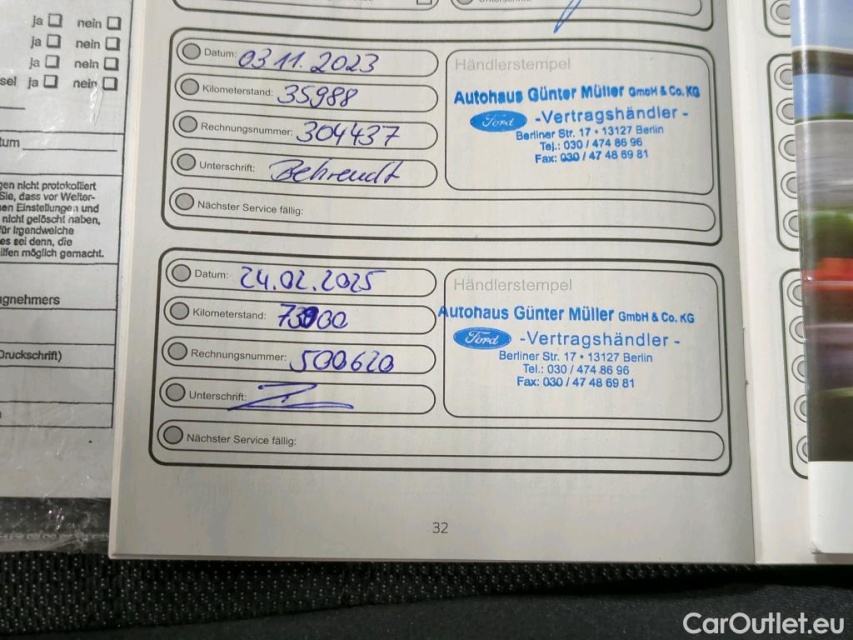 ja nein
ja nein
ja nein
sel ja nein
tum
gen nicht protokolliert
Sie, dass vor Weiter-
nen Einstellungen und
nicht gelöscht haben,
für Irgendwelche
es sei denn, die
ilfen möglich gemacht.
gnehmers
Druckschrift)
Datum: 03.11.2023
Kilometerstand: 35988
Rechnungsnummer: 304437
Unterschrift: Behrendt
Nächster Service fällig:
Händlerstempel
Autohaus Günter Müller GmbH & Co. KG
Ford -Vertragshändler -
Berliner Str. 17 • 13127 Berlin
Tel.: 030 / 474 86 96
Fax: 030 / 47 48 69 81
Datum: 24.02.2025
Kilometerstand: 73000
Rechnungsnummer: 500620
Unterschrift:
Nächster Service fällig:
Händlerstempel
Autohaus Günter Müller GmbH & Co. KG
Ford -Vertragshändler -
Berliner Str. 17 • 13127 Berlin
Tel.: 030 / 474 86 96
Fax: 030 / 47 48 69 81
32
CarOutlet.eu